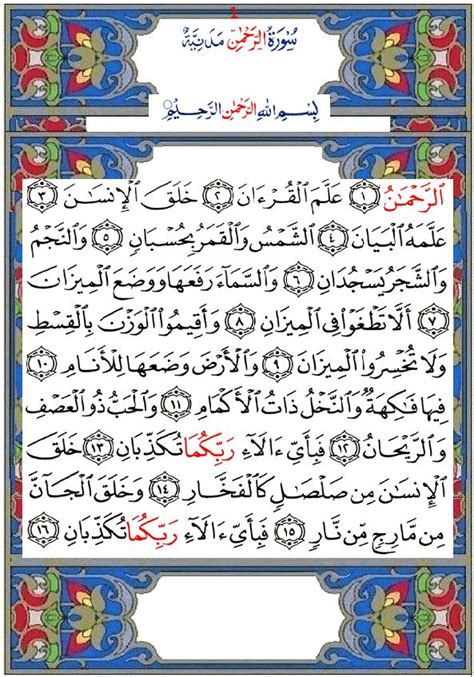 1
سُورَةُ الرَّحْمٰنِ مَدَنِيَّةٌ
بِسْمِ اللهِ الرَّحْمٰنِ الرَّحِيْمِ
ٱلرَّحْمَـٰنُ ١ عَلَّمَ ٱلْقُرْءَانَ ٢ خَلَقَ ٱلْإِنسَـٰنَ ٣
عَلَّمَهُ ٱلْبَيَانَ ٤ ٱلشَّمْسُ وَٱلْقَمَرُ بِحُسْبَانٍ ٥ وَٱلنَّجْمُ
وَٱلشَّجَرُ يَسْجُدَانِ ٦ وَٱلسَّمَآءَ رَفَعَهَا وَوَضَعَ ٱلْمِيزَانَ
٧ أَلَّا تَطْغَوْا۟ فِى ٱلْمِيزَانِ ٨ وَأَقِيمُوا۟ ٱلْوَزْنَ بِٱلْقِسْطِ
وَلَا تُخْسِرُوا۟ ٱلْمِيزَانَ ٩ وَٱلْأَرْضَ وَضَعَهَا لِلْأَنَامِ ١٠
فِيهَا فَـٰكِهَةٌ وَٱلنَّخْلُ ذَاتُ ٱلْأَكْمَامِ ١١ وَٱلْحَبُّ ذُو ٱلْعَصْفِ
وَٱلرَّيْحَانُ ١٢ فَبِأَىِّ ءَالَآءِ رَبِّكُمَا تُكَذِّبَانِ ١٣ خَلَقَ
ٱلْإِنسَـٰنَ مِن صَلْصَـٰلٍ كَٱلْفَخَّارِ ١٤ وَخَلَقَ ٱلْجَآنَّ
مِن مَّارِجٍ مِّن نَّارٍ ١٥ فَبِأَىِّ ءَالَآءِ رَبِّكُمَا تُكَذِّبَانِ ١٦